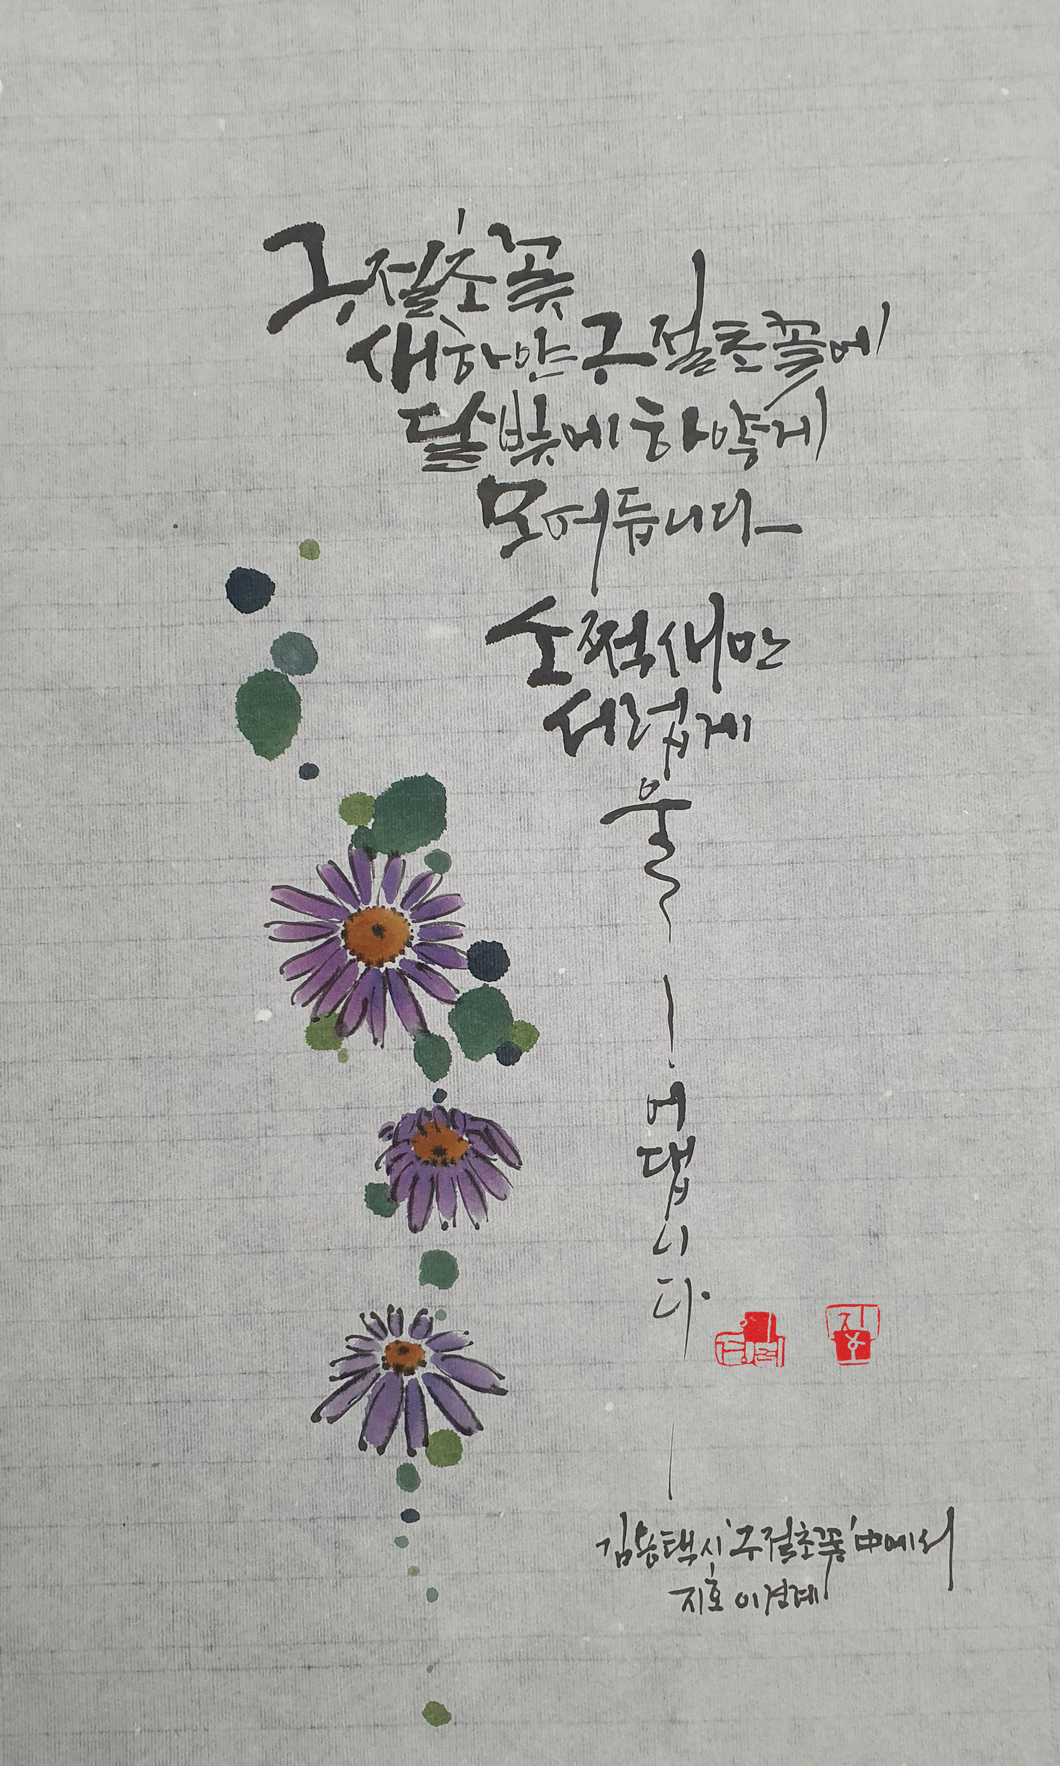 구절초꽃
새하얀 구절초꽃에
달빛에 하얗게
모여듭니다
소쩍새만
서럽게
울
어
댑
니
다.
지호
김용택 시 '구절초꽃' 中에서
지호 이경례